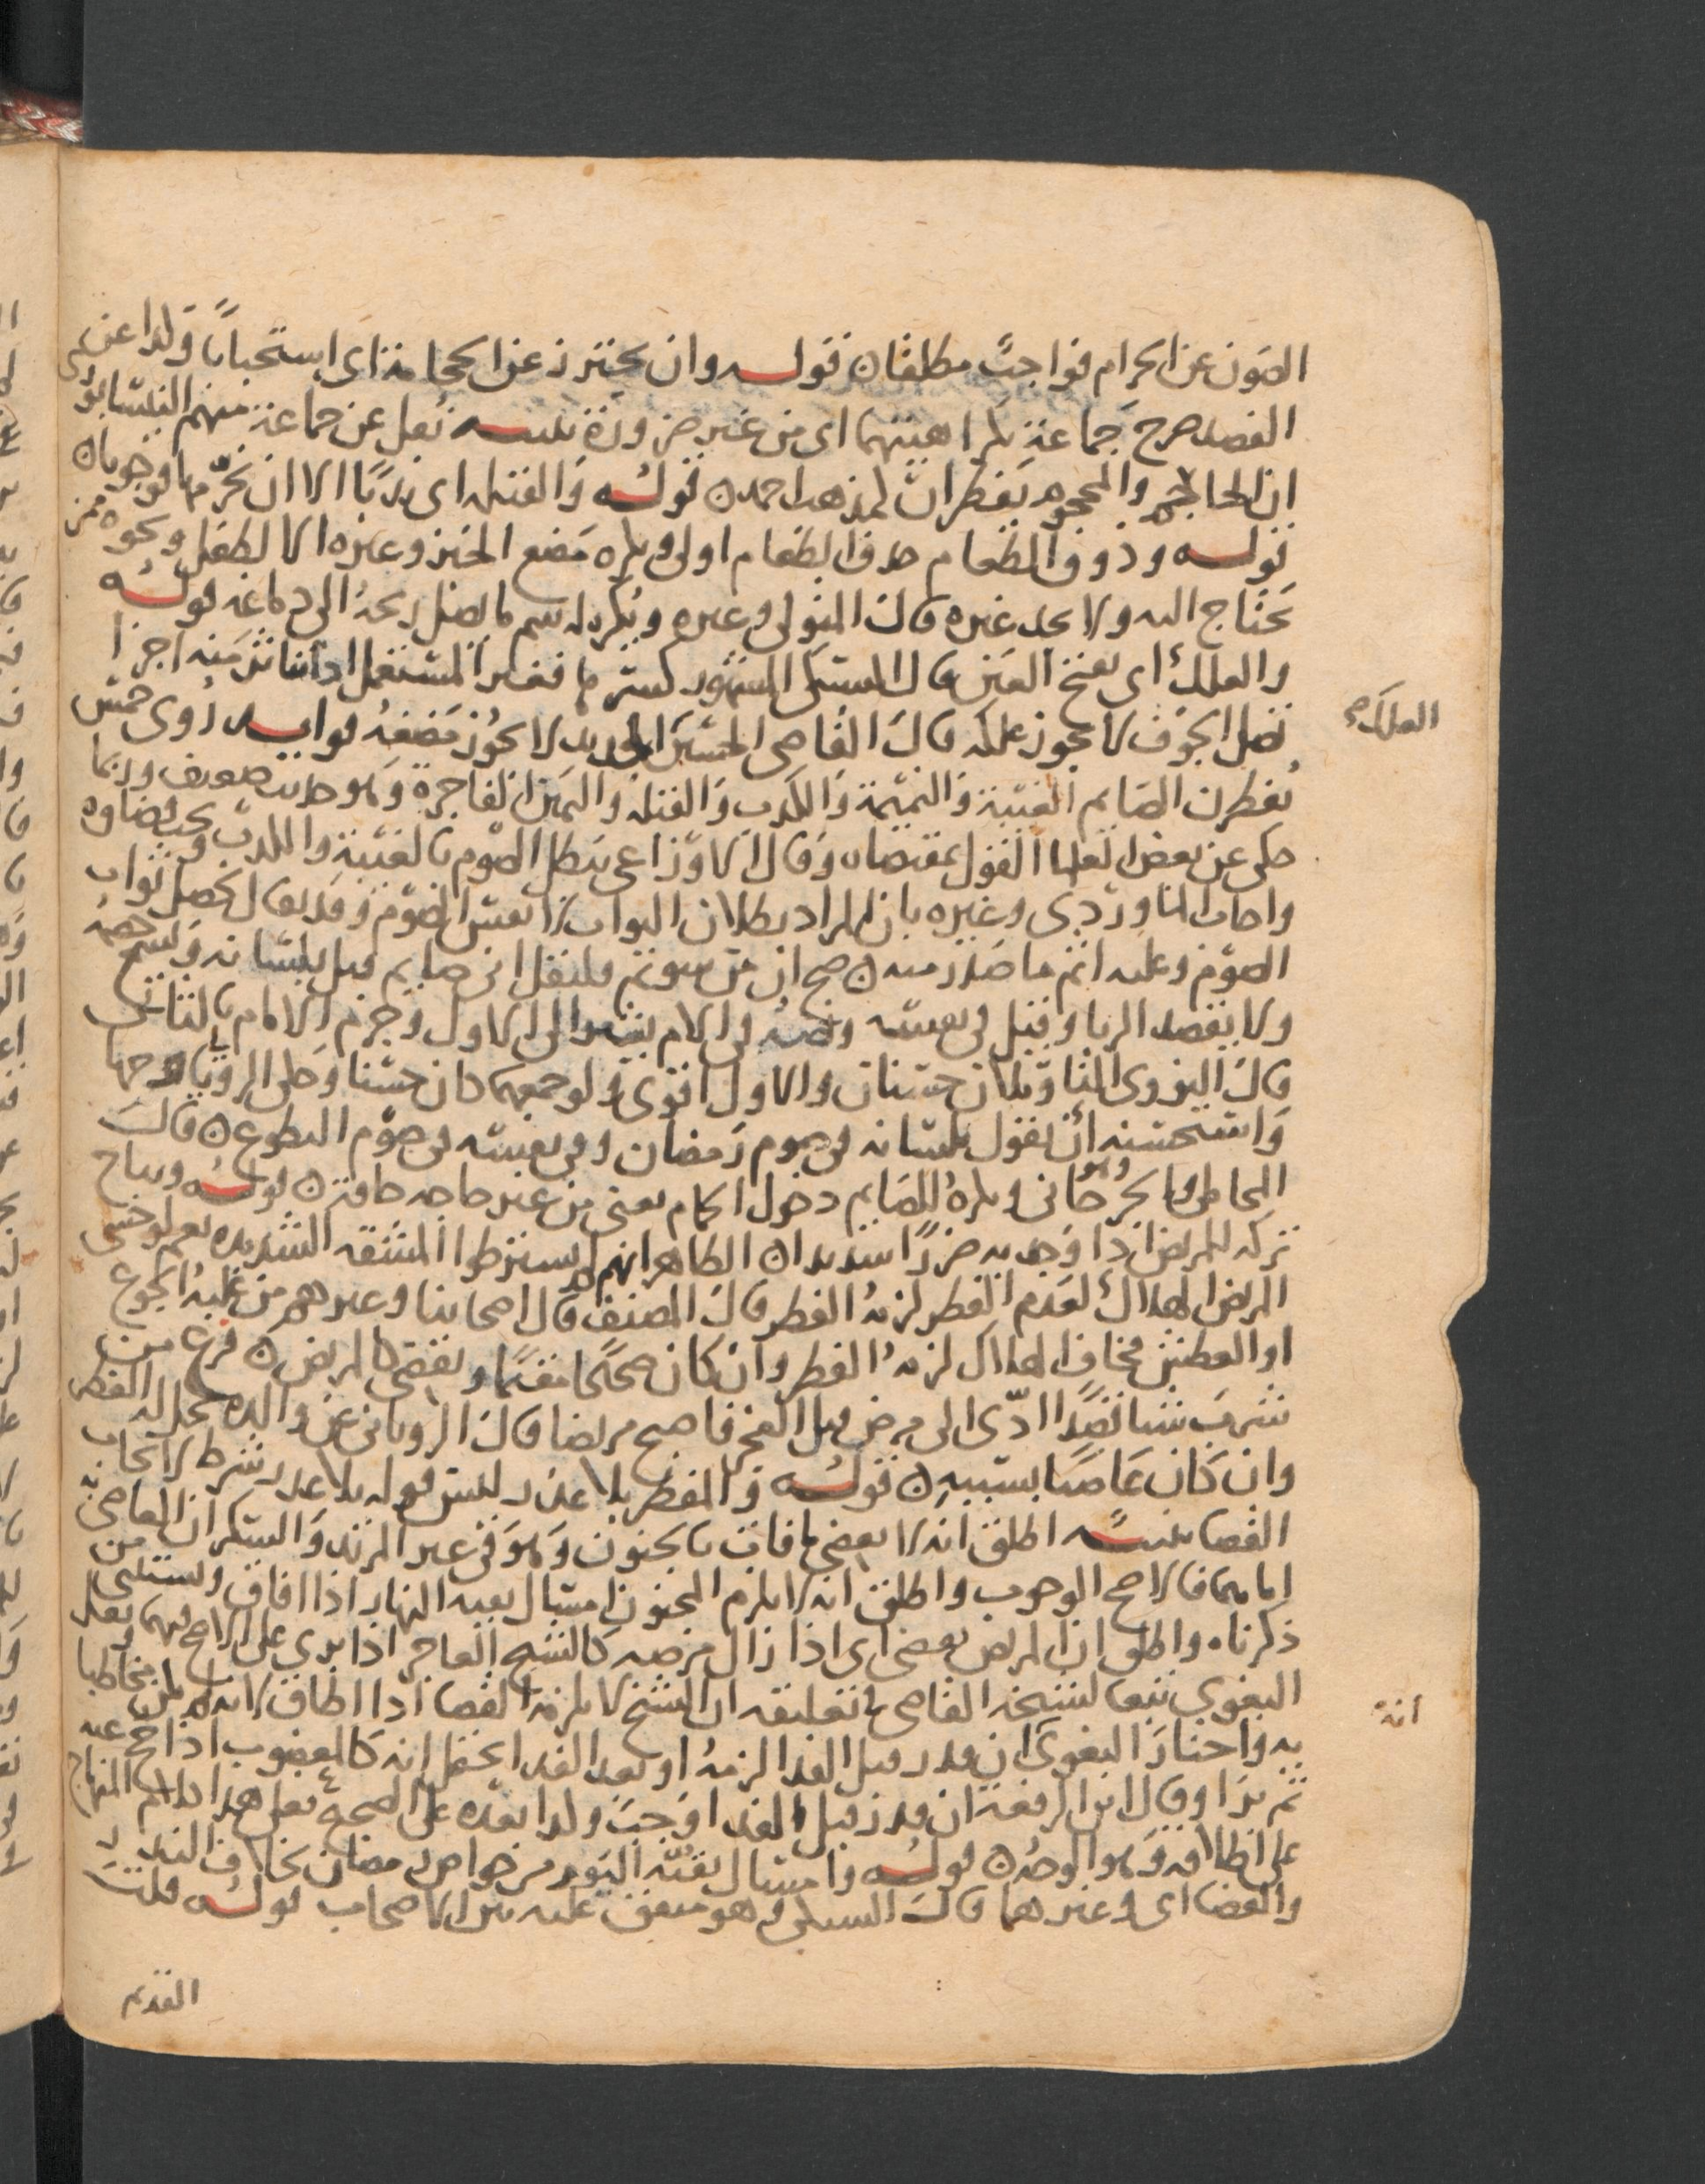 الصون عن الحرام فواجب مطلقا ن قوله وان يحترز عن الحجامة اى استحبابا وكذا عن
الفصد صرح جماعة بكراهيتهما اى من غير ضرورة تنبيه نقل عن جماعة منهم النيسابورى
ان الحاجم والمحجوم يفطران كمذهب احمد ن قوله والقبلة اى ندبا الا ان تحرمها فوجوبا ن
قوله وذوق الطعام حذف الطعام اولى ويكره مضغ الخبز وغيره الا لطفل ونحوه ممن
يحتاج اليه ولا يجد غيره قال المتولى وغيره ويكره له شم ما يصل ريحه الى دماغه قوله
والعلك اى بفتح العين قال السبكى المشهور كسرها فقدر المستعمل اذا تناثر منه اجزا
تصل الجوف لا يجوز علكه قال القاضى الحسين الجديد لا يجوز مضغه فوايد روى خمس
يفطرن الصايم الغيبة والنميمة والكذب والقبلة واليمين الفاجرة وهو حديث ضعيف وربما
حكى عن بعض العلما القول بمقتضاه وقال الاوزاعى يبطل الصوم بالغيبة والكذب ويجب قضاوه
واجاب الماوردى وغيره بان المراد بطلان الثواب لا نفس الصوم وقد يقال يحصل ثواب
الصوم وعليه اثم ما صدر منه ن صح ان من شوتم فليقل انى صايم قيل بلسانه ويسمع خصمه
ولا يقصد الريا وقيل فى نفسه ونصه فى الام يشير الى الاول وجزم الامام بالثانى
قال النووى التاويلان حسنان والاول اقوى ولو جمعهما كان حسنا وحكى الرويانى وجها
واستحسنه ان يقول بلسانه فى صوم رمضان وفى نفسه فى صوم التطوع ن قال
المحاملى والجرجانى ويكره للصايم دخول الحمام يعنى من غير حاجه حافزه ن قوله ويباح
تركه للمريض اذا وجد به ضررا شديدا ن الظاهر انهم لم يشترطوا المشقه الشديده نعم لو خشى
المريض الهلاك لعدم الفطر لزمه الفطر قال المصنف قال اصحابنا وغيرهم من غلبه الجوع
او العطش فخاف الهلاك لزمه الفطر وان كان صحيحا مقيما ويقضى كالمريض ن فرع من
شرب شيا قصدا ادى الى مرض قبل الفجر فاصبح مريضا قال الرويانى عن والده يحل له الفطر
وان كان عاصيا بسببه ن قوله والمفطر بلا عذر ليس قوله بلا عذر شرط لايجاب
القضا تنبيه اطلق انه لا يقضى ما فات بالجنون وهو فى غير المرتد والسكران العاصى به
اما هما فالاصح الوجوب واطلق انه لا يلزم المجنون امتثال بقيه النهار اذا افاق ويستثنى من
ذكرناه واطلق ان المريض يقضى اى اذا زال مرضه كالشيخ العاجز اذا برى على الاصح فيهما ونقل
البغوى تبعا لشيخه القاضى فى تعليقه ان الشيخ لا يلزمه القضا اذا اطاق لانه لم يكن مخاطبا
به واختار البغوى ان قدر قبل الفدا لزمه او بعد الفدا يحتمل انه كالمعضوب اذا حج عنه
ثم برا وقال ابن الرفعة ان قدر قبل الفدا وجب وكذا بعده على الصحيح فعلى هذا كلام المنهاج
على اطلاقه وهو الوجه ن قوله وامتثال بقيه اليوم من خواص رمضان بخلاف النذر
والقضا اى وغيرهما قال السبكى وهو متفق عليه بين الاصحاب قوله قلت
العلك صح
انه
القديم